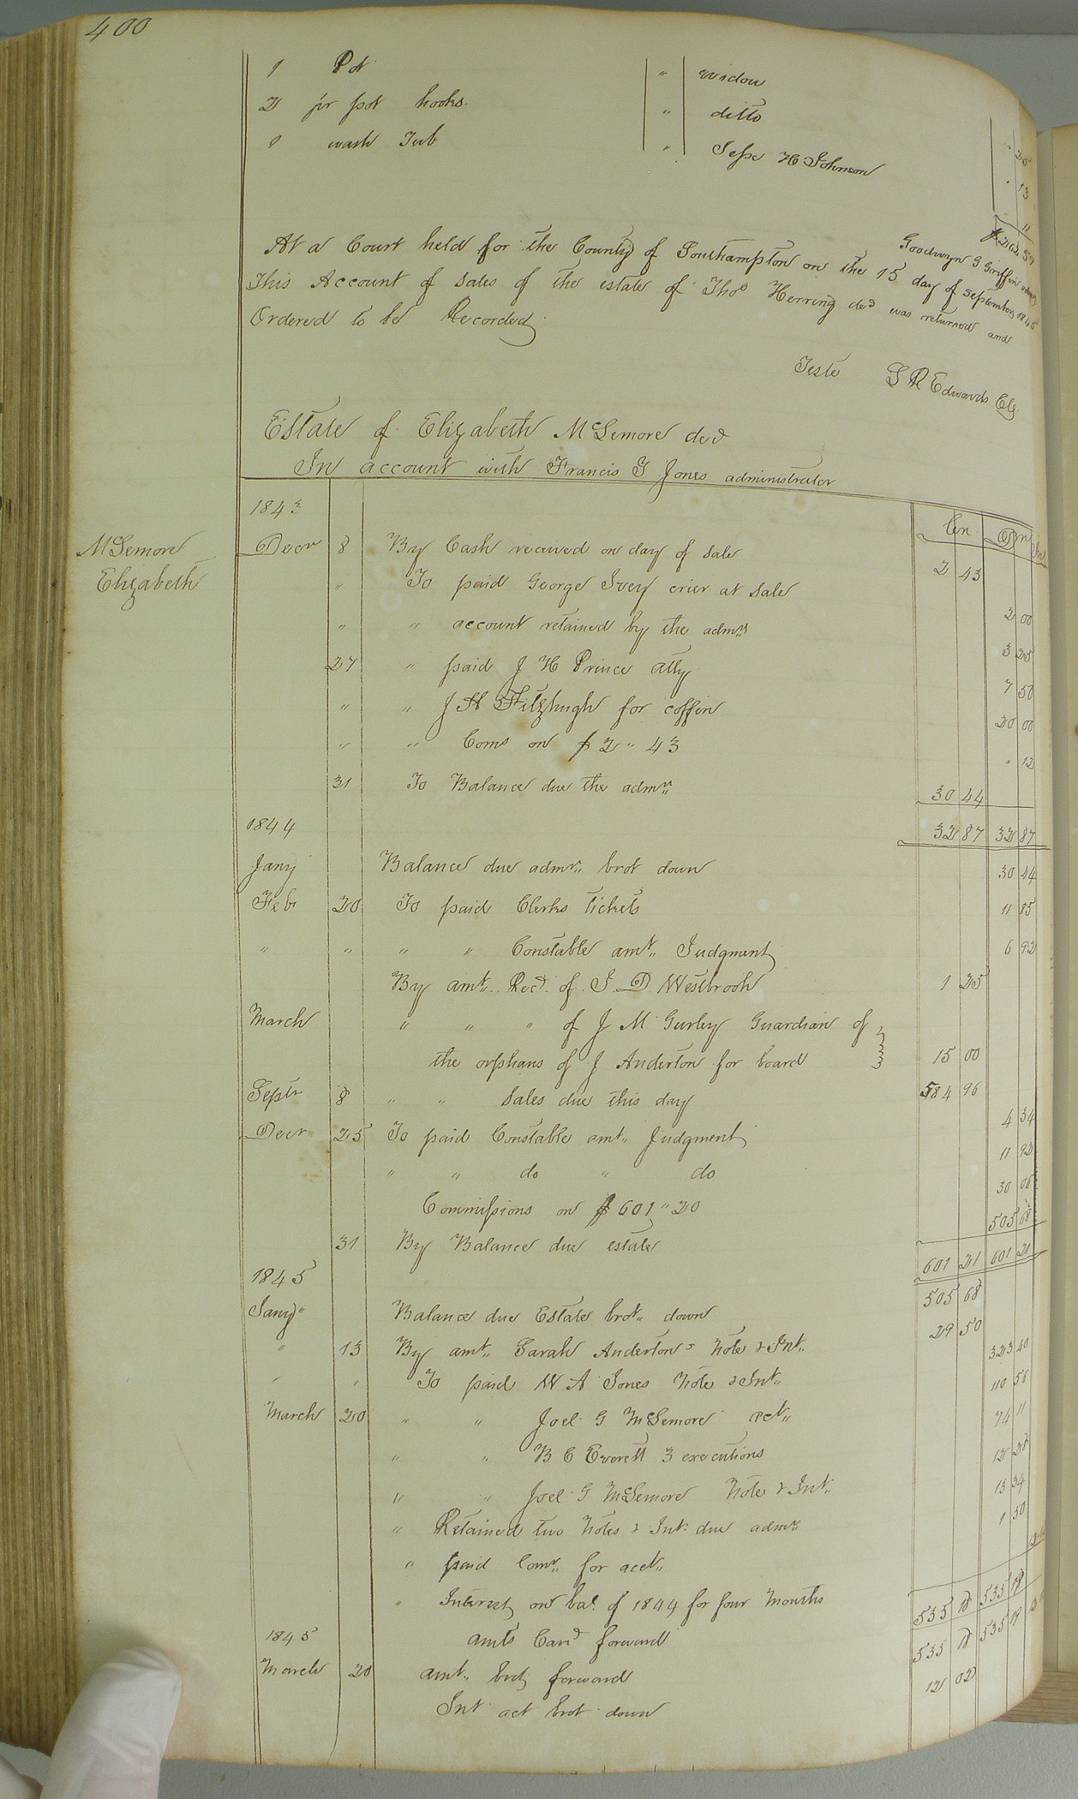 400
1 Pot " widow
2 pr pot hooks " ditto 25
1 wash Tub " Jesse H Johnson 13
11
Goodwyn G Griffin
At a Court held for the County of Southampton on the 15 day of September 1845
This Account of sales of the estate of Thos Herring decd was returned and
Ordered to be Recorded
Teste L R Edwards Clk
Estate of Elizabeth McLemore decd
In account with Francis T Jones administrator
1843 Cr Dr
McLemore Elizabeth
Decr 8 By Cash received on day of sale 2 43
" To paid George Ivey crier at sale 2 00
" " account retained by the admr 3 25
27 " paid J H Prince Atty 7 50
" " J H Fitzhugh for coffin 20 00
" " Coms on $2 " 43 " 12
31 To Balance due the admr 30 44
32 87 32 87
1844
Jany Balance due admr brot down 30 44
Feb 20 To paid Clerks tickets 11 85
" " " " Constable amt Judgment 6 92
By amt Recd of J D Westbrook 1 25
March " " " of J M Gurley Guardian of
the orphans of J Anderton for board 15 00
Septr 8 " " sales due this day 584 96
Decr 25 To paid Constable amt Judgment 4 34
" " do " do 11 92
Commissions on $601 " 20 30 06
31 By Balance due estate 505 68
601 21 601 21
1845
Jany Balance due Estate brot down 505 68
" 13 By amt Sarah Andertons Note & Int 29 50
" " To paid W A Jones Note & Int 323 40
March 20 " " Joel G McLemore act 110 56
" " B C Everett 3 executions 74 11
" " Joel G McLemore Note & Int 12 28
" Retained two Notes & Int due admr 13 34
" paid Comr for acct 1 50
" Interest on bal of 1844 for four Months
535 18 535 19
1845 amts Card forward 535 18 535 19
March 20 amt brot forward 12 02
Int act brot down